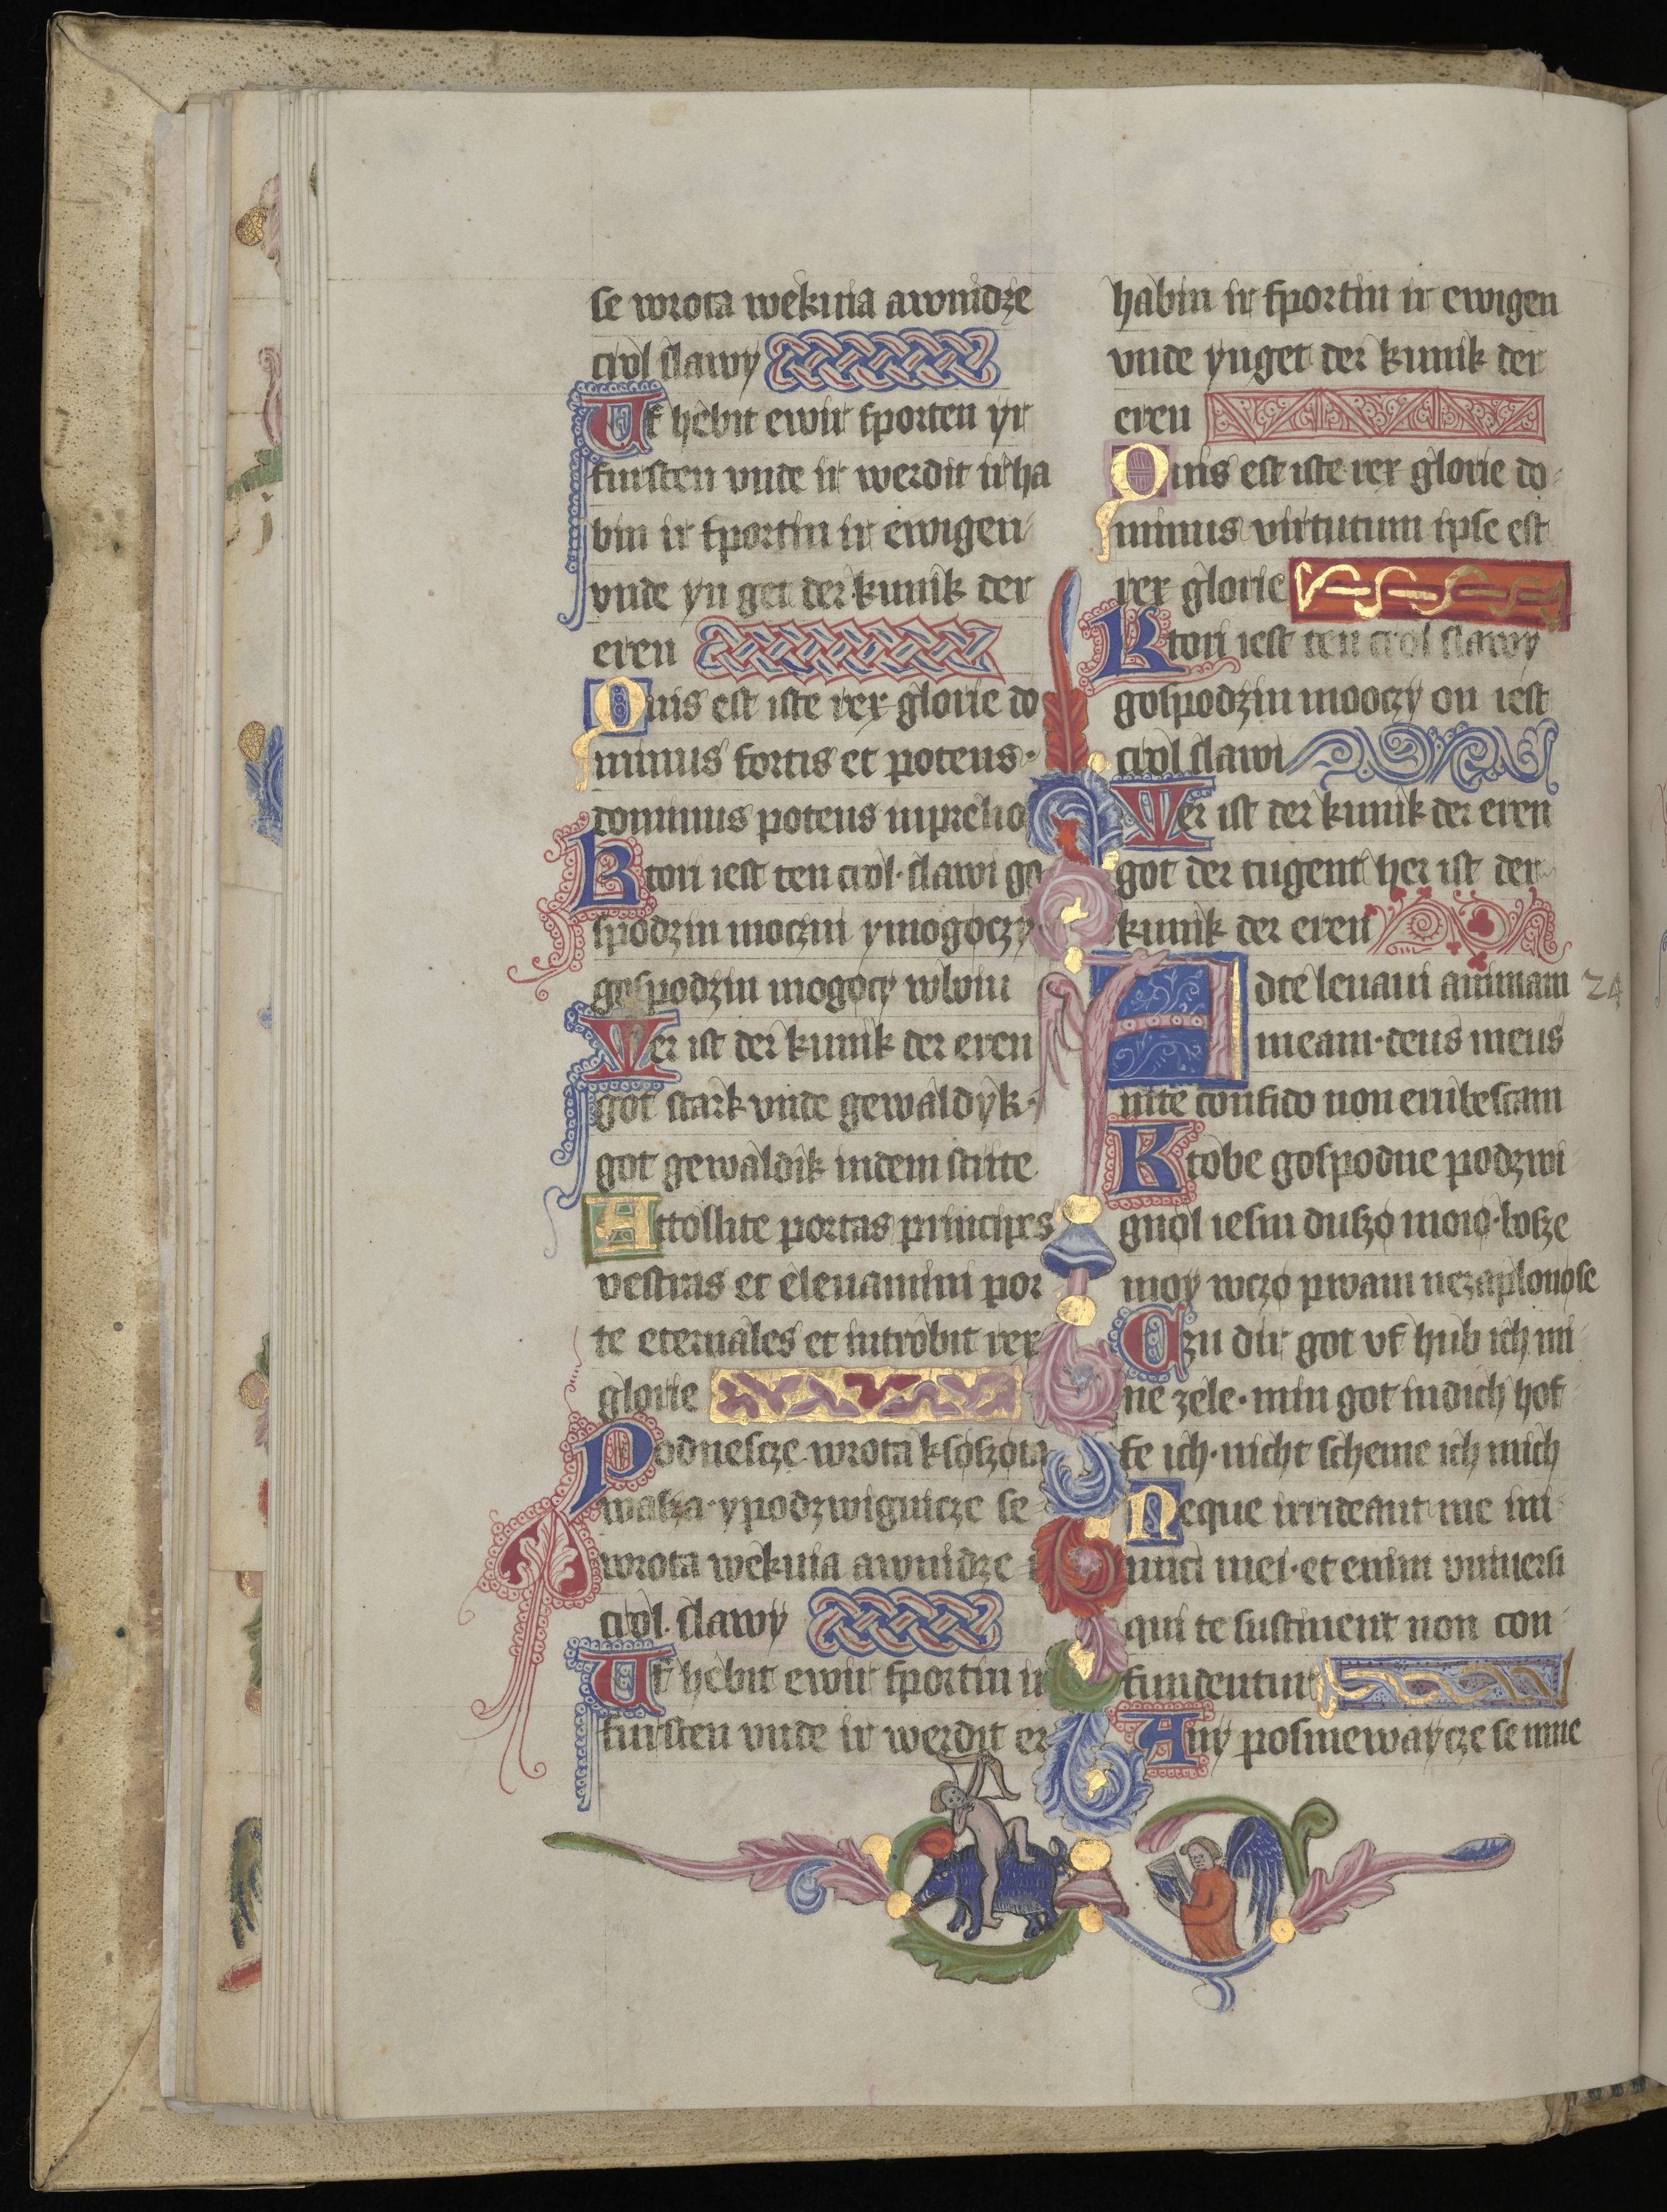 se wrota wekuia awnidze
crol slawy
Uf hebit ewir sporten yr
fursten vnde ir werdit irha
bin ir sportin ir ewigen
vnde yn get der kunik der
eren
Quis est iste rex glorie do
minus fortis et potens·
dominus potens inprelio
Ktori iest ten crol·slawi go
spodzin moczni ymogoczy
gospodzin mogocy wboiu
Wer ist der kunik der eren
got stark vnde gewaldyk·
got gewaldik indem strite
Attollite portas principes
vestras et eleuamini por
te eternales et introbit rex
glorie
Podnescze wrota ksoszota
wasza·ypodzwignicze se
wrota wekuia awnidze
crol·slawy
Uf hebit ewir sportin ir
fursten vnde ir werdit er
habin ir sportin ir ewigen
vnde ynget der kunik der
eren
Quis est iste rex glorie do
minus virtutum ipse est
rex glorie
Ktori iest ten crol slawy
gospodzin mooczy on iest
crol slawi
Wer ist der kunik der eren
got der tugent her ist der
kunik der eren
Adte leuaui animam 24
meam·deus meus
inte confido non erubescam
Ktobe gospodne podzwi
gnol iesm duszo moio·bosze
moy wczo pwam nezaplonose
Czu dir got vf hub ich mi
ne zele·min got indich hof
fe ich·nicht scheme ich mich
Neque irrideant me ini
mici mei·et enim vniuersi
qui te sustinent non con
fundentur
Any posmewaycze se mne